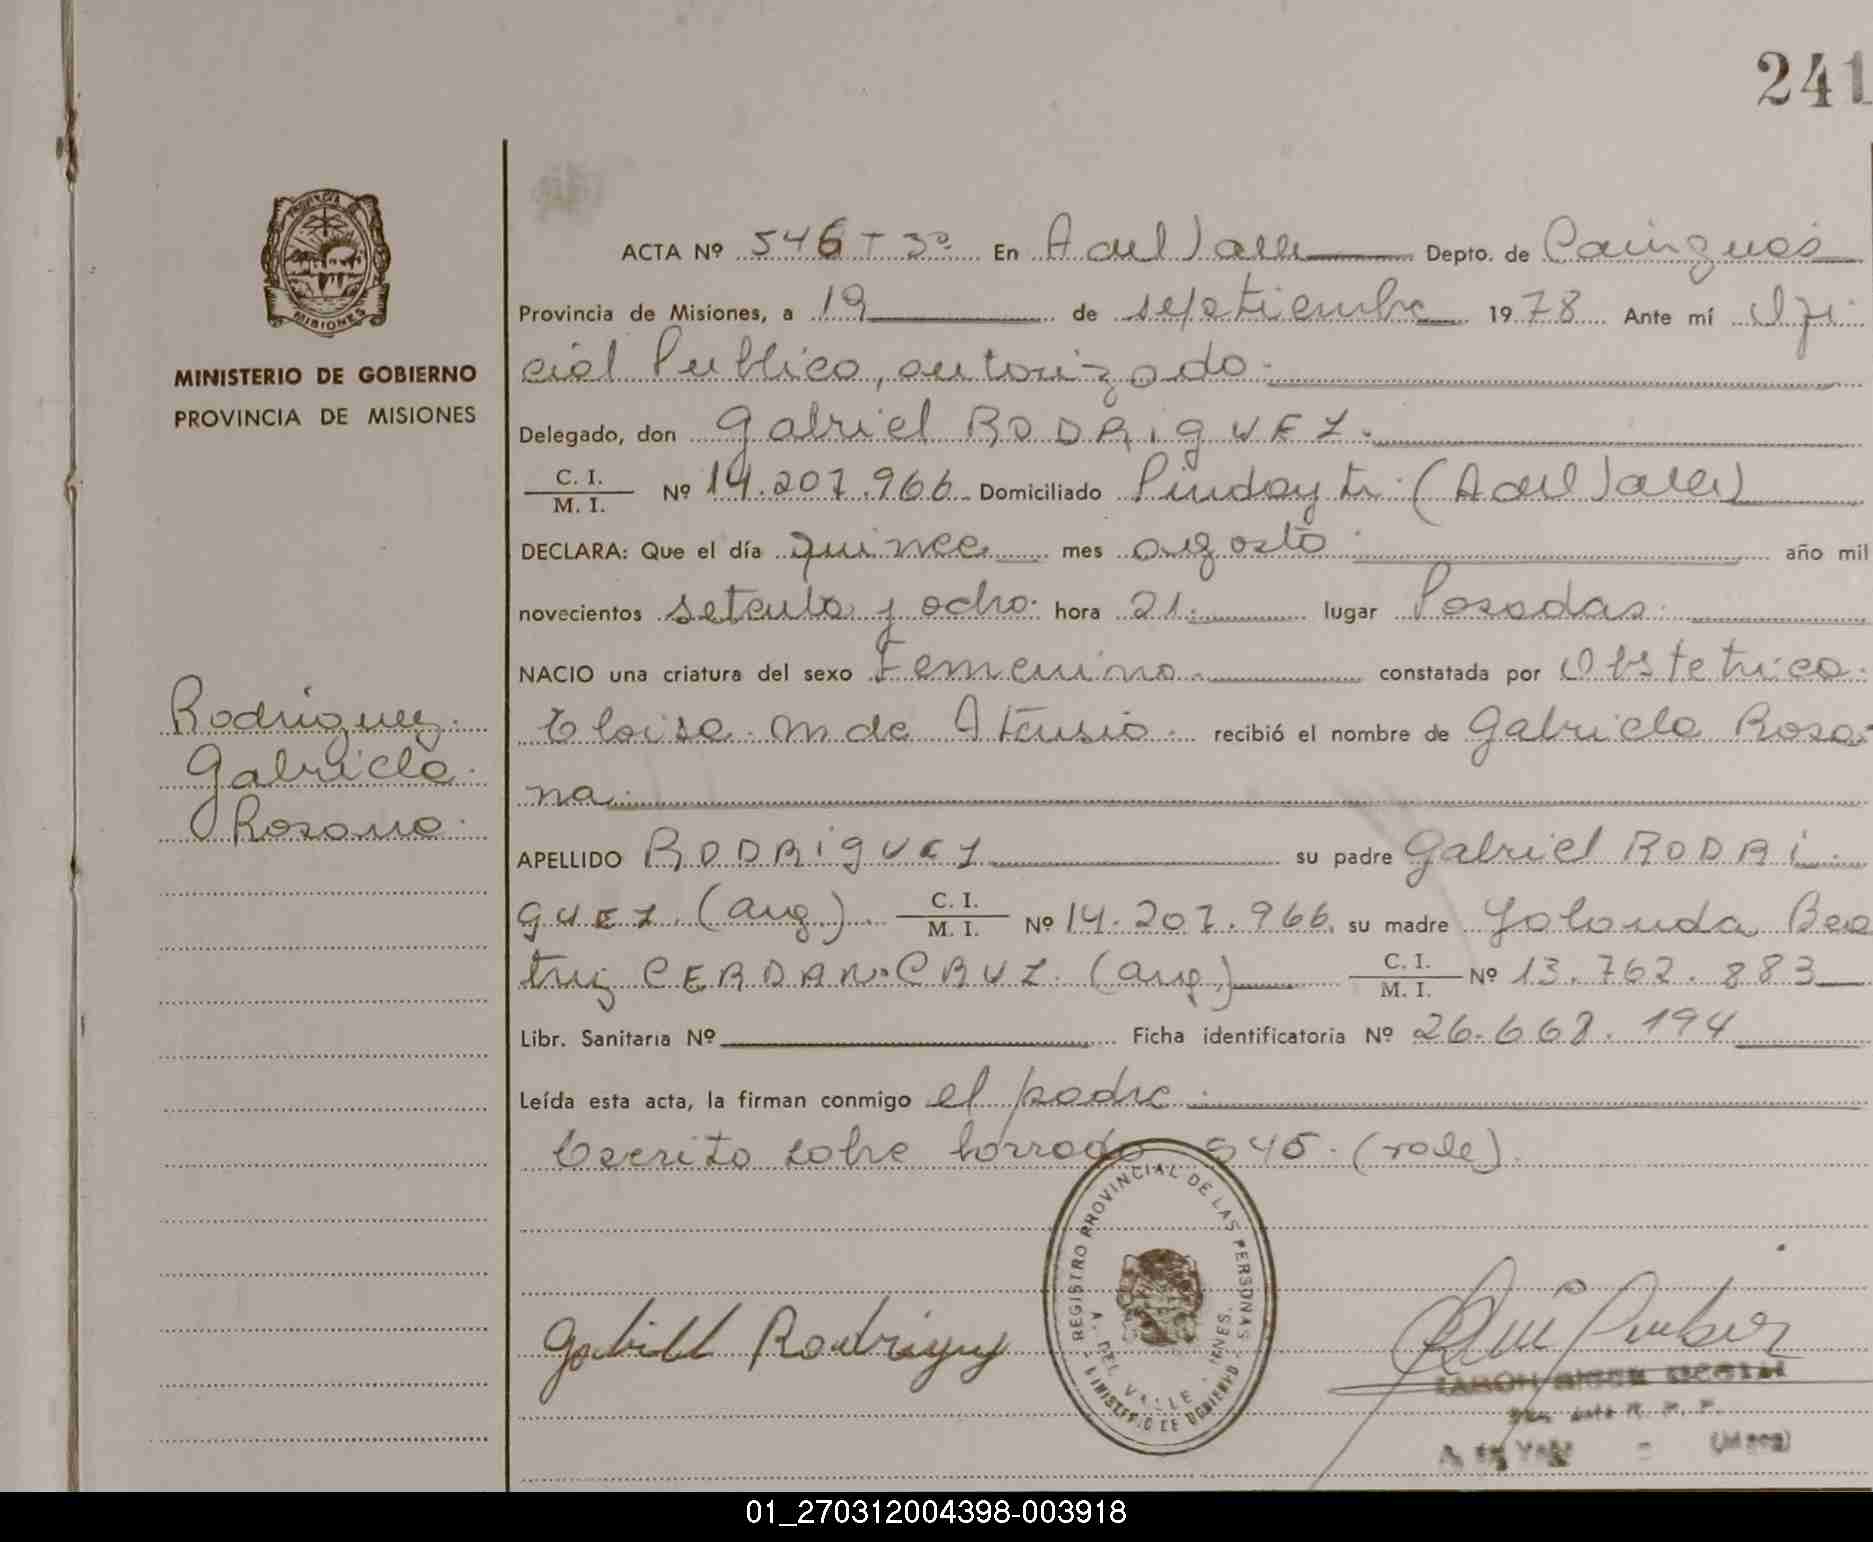 241
MINISTERIO DE GOBIERNO
PROVINCIA DE MISIONES
Rodriguez.
Gabriela.
Rosana.
ACTA Nº 546 T 3º En A del Valle Depto. de Cainguás
Provincia de Misiones, a 19 de septiembre 1978 Ante mí Ofi
cial Publico, autorizado.
Delegado, don Gabriel RODRIGUEZ.
C. I.
M. I. Nº 14.207.966 Domiciliado Pindayti (A del Valle)
DECLARA: Que el día quince mes agosto. año mil
novecientos setenta y ocho. hora 21. lugar Posadas.
NACIO una criatura del sexo Femenino. constatada por Obstetrica.
Eloisa M de recibió el nombre de Gabriela Rosa-
na.
APELLIDO RODRIGUEZ su padre Gabriel RODRI
GUEZ. (arg.). C. I.
M. I. Nº 14.207.966. su madre Yolonda Bea
triz CERDAN CRUZ. (arg.) C. I.
M. I. Nº 13.762.883
Libr. Sanitaria Nº Ficha identificatoria Nº 26.668.194
Leída esta acta, la firman conmigo el padre.
Escrito sobre borrado 545. (vale).
REGISTRO PROVINCIAL DE LAS PERSONAS
A. DEL VALLE - MNES.
MINISTERIO DE GOBIERNO
MISIONES
Gabriel Rodriguez
RAMON
A. del Valle (Mnes)
01_270312004398-003918